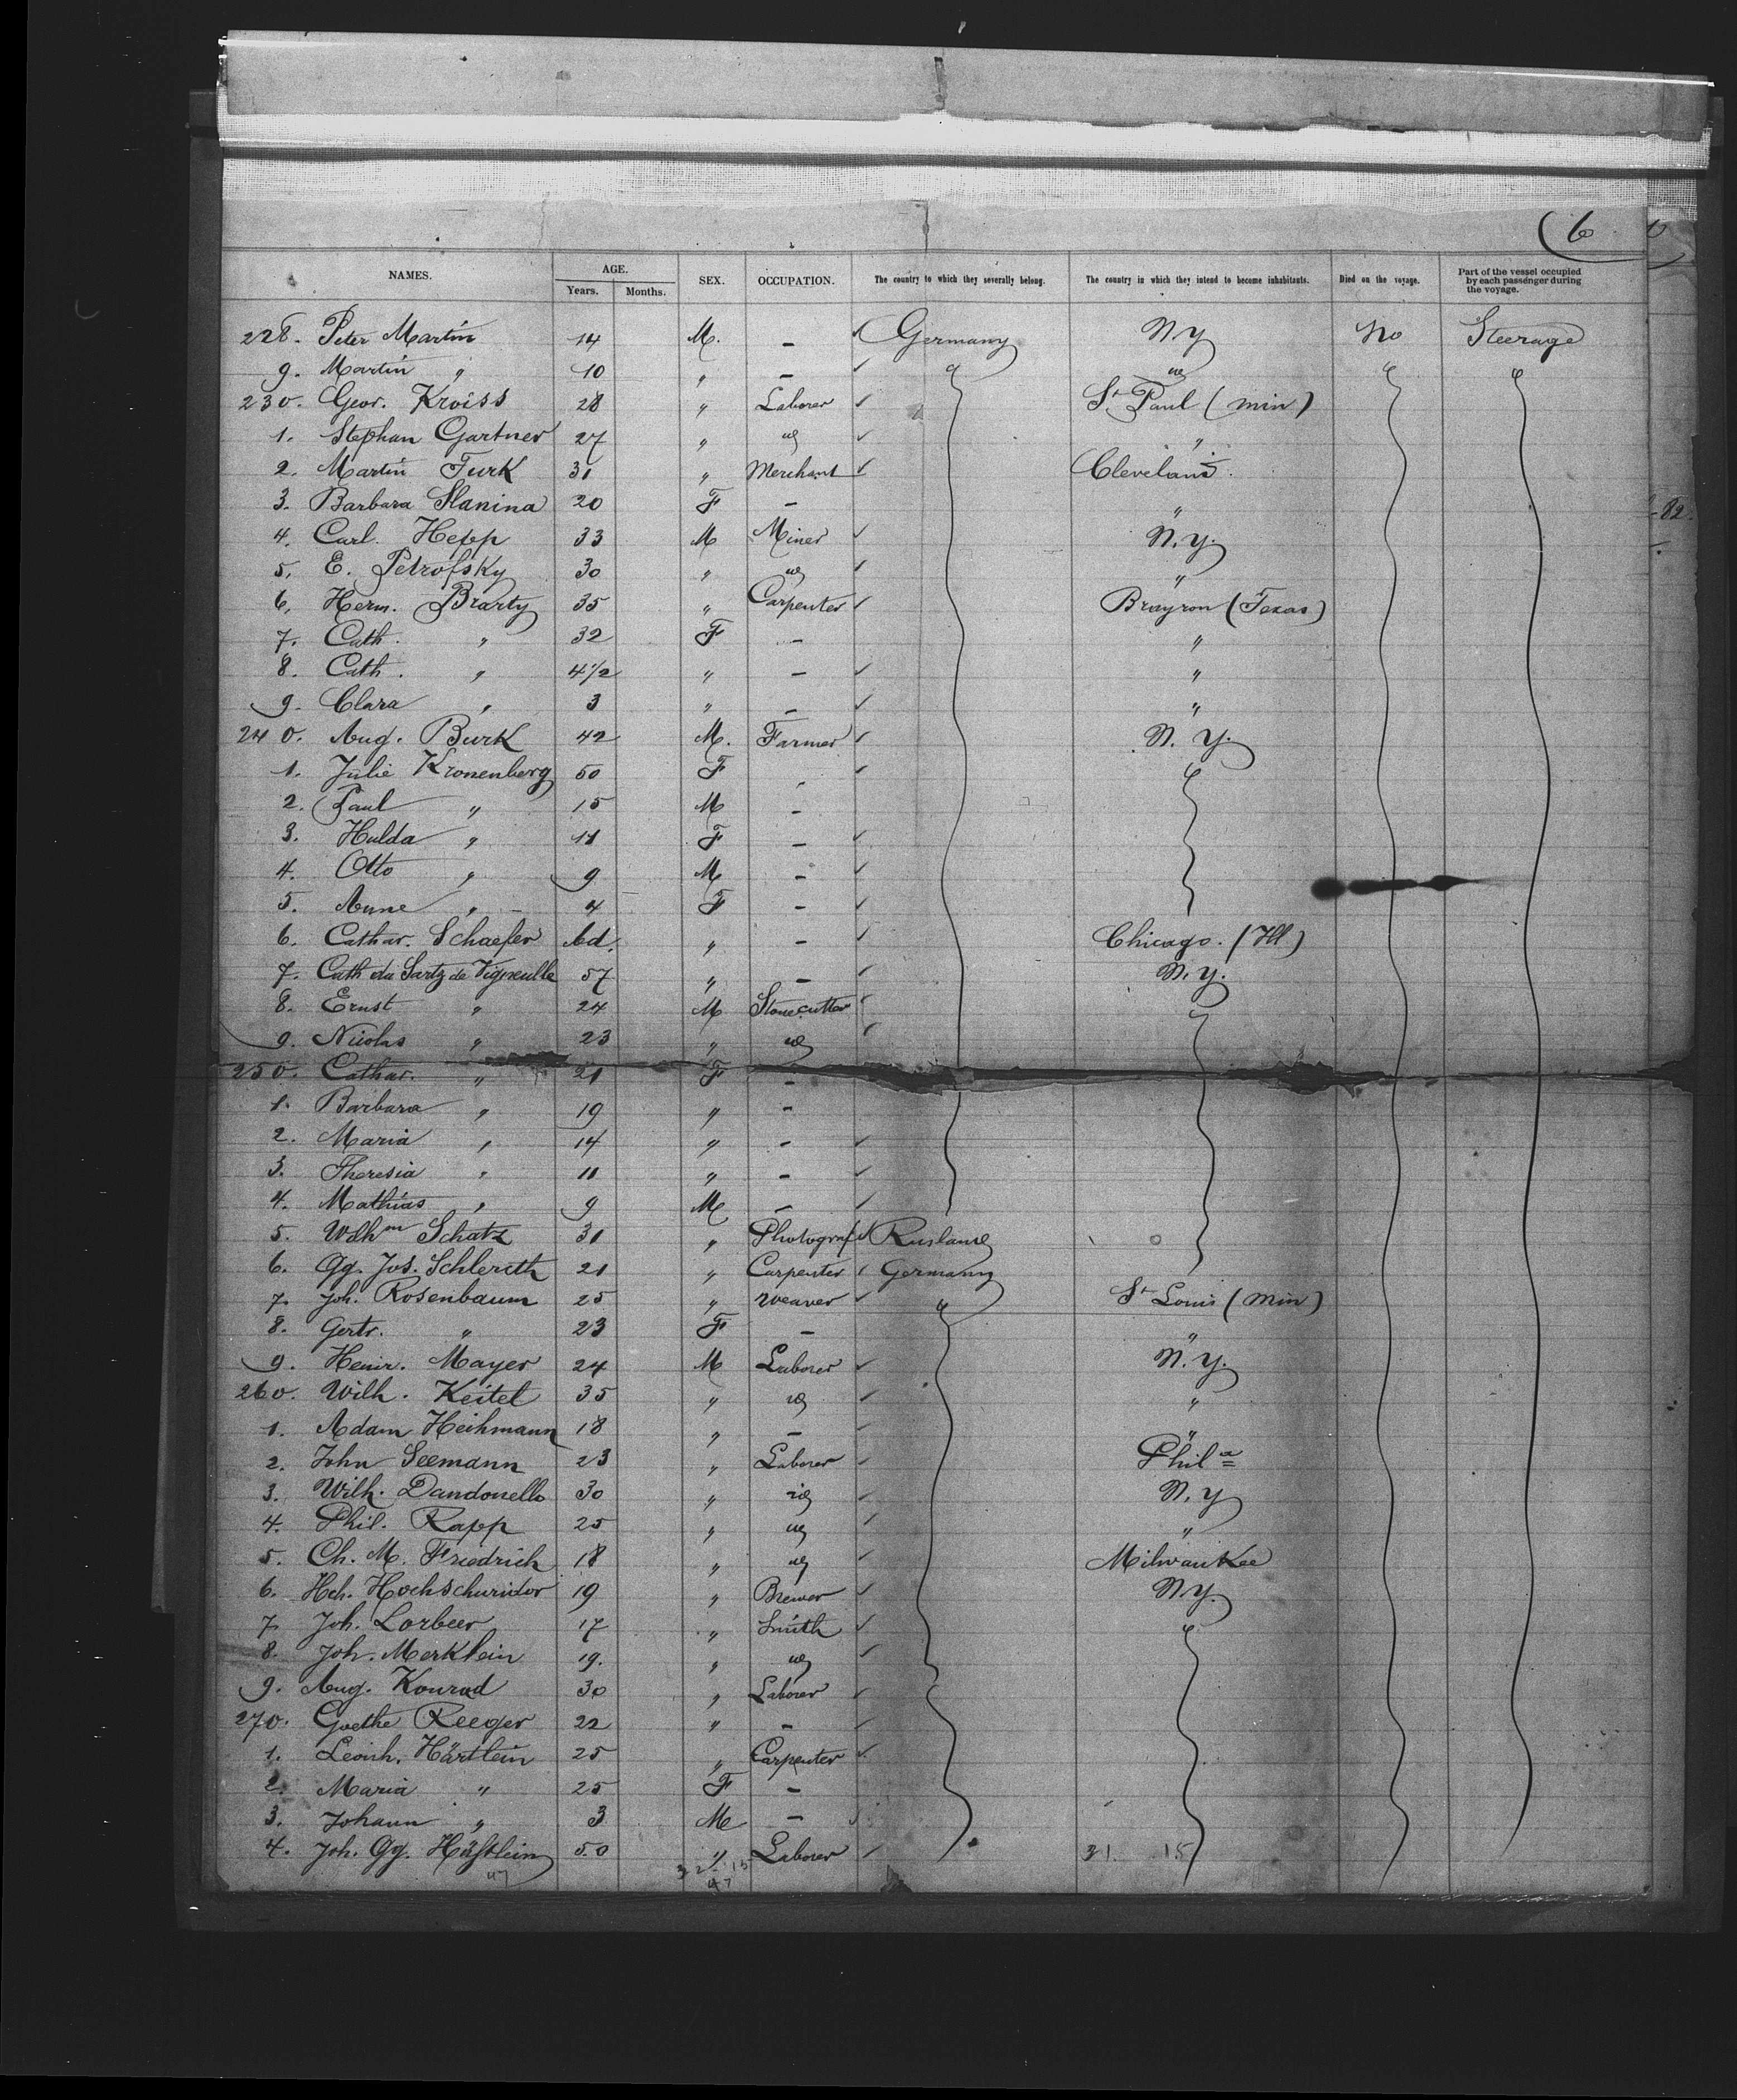 (6
NAMES. AGE. Years. Months. SEX. OCCUPATION. The country to which they severally belong. The country in which they intend to become inhabitants. Died on the voyage. Part of the vessel occupied by each passenger during the voyage.
228. Peter Martin 14 M. – Germany N.Y No Steerage
9. Martin " 10 " –
230. Geor. Kroiss 28 " Laborer St Paul (Min)
1. Stephan Gartner 27 " "
2. Martin Turk 31 " Merchant Cleveland.
3. Barbara Slanina 20 F – "
4. Carl. Hepp 33 M Miner N.Y.
5. E. Petrofsky 30 " "
6. Herm. Brarty 35 " Carpenter Brayron (Texas)
7. Cath. " 32 F – "
8. Cath. " 4 1/2 " – "
9. Clara " 3 " – "
240. Aug. Burk 42 M. Farmer N.Y.
1. Julie Kronenberg 50 F
2. Paul " 15 M –
3. Hulda " 11 F –
4. Otto " 9 M –
5. Anne " 4 F –
6. Cathar. Schaefer " – Chicago. (Ill)
7. Cath du Sartz de Vigneulle 57 " – N.Y.
8. Ernst " 24 M Stonecutter
9. Nicolas " 23 "
250. Cathar. " 21 F –
1. Barbara " 19 " –
2. Maria " 14 " –
3. Theresia " 11 " –
4. Mathias " 9 M –
5. Wilhm Schatz 31 " Photograf Rusland
6. Gg. Jos. Schlereth 21 " Carpenter Germany
7. Joh. Rosenbaum 25 " Weaver St Louis (Min)
8. Gertr. " 23 F – "
9. Heinr. Mayer 24 M Laborer N.Y.
260. Wilh. Keitel 35 " "
1. Adam Heihmann 18 " – "
2. John Seemann 23 " Laborer Phila
3. Wilh. Dandonello 30 " N.Y
4. Phil. Rapp 25 " "
5. Ch. M. Friedrich 18 " Milwaukee
6. Hch. 19 " Brewer N.Y.
7. Joh. Lorbeer 17 " Smith
8. Joh. Merklein 19. "
9. Aug. Konrad 30 " Laborer
270. Goethe Reeger 22 " –
1. Leonh. Härtlein 25 " Carpenter
2. Maria " 25 F –
3. Johann " 3 M –
4. Joh. Gg. Häfslein 50 " Laborer 31. 15
47 32 15
47